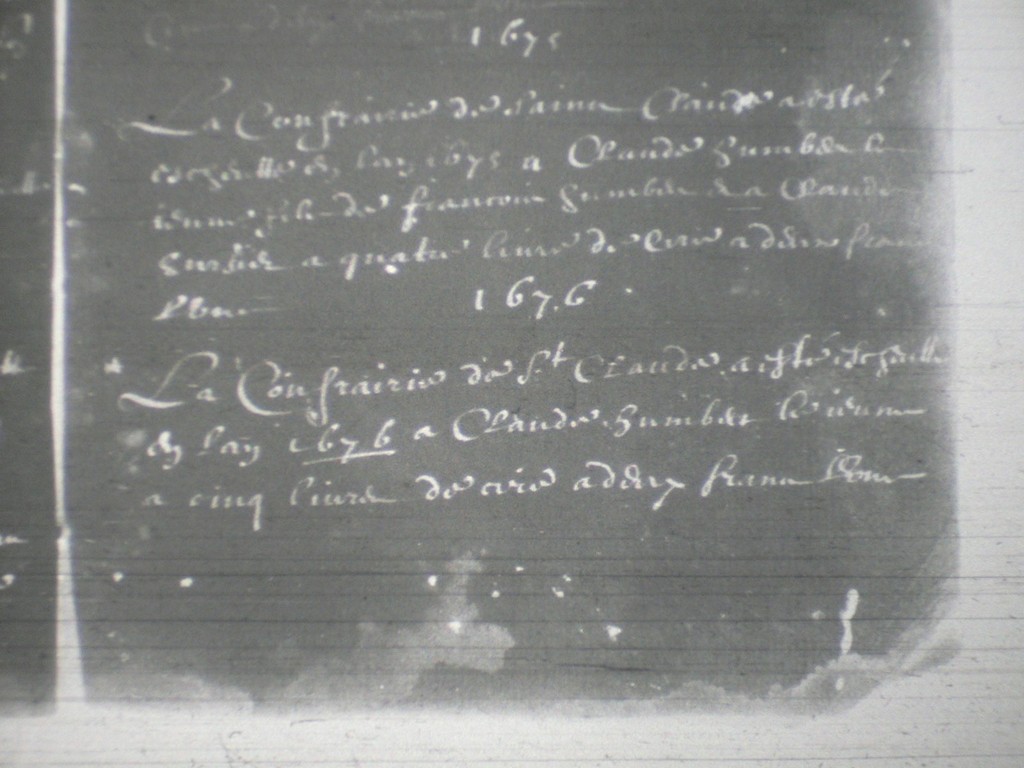 1675
La Confrairie de Sainct Claude a esté
escheutte en lan 1675 a Claude humber le
ieune filz de francois humber & a Claude
a quatre livre de cire a deux franc
1676
La Confrairie de St Claude a esté escheutte
en lan 1676 a Claude humber le ieune
a cinq livre de cire a deux franc